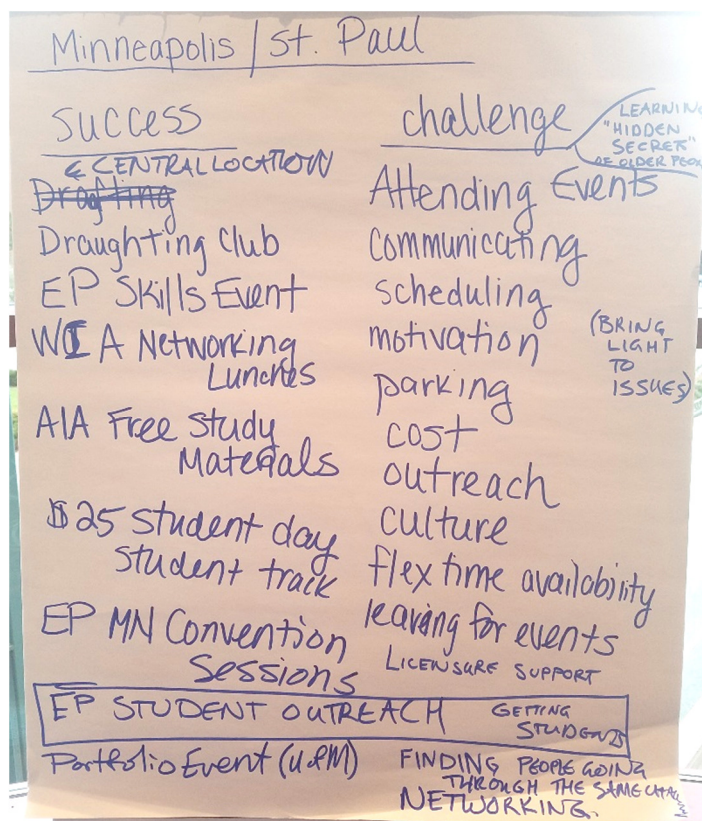 Minneapolis / St. Paul
success
& CENTRAL LOCATION
Drafting
Draughting Club
EP Skills Event
WIA Networking
Lunches
AIA Free Study
Materials
$25 student day
student track
EP MN Convention
Sessions
EP STUDENT OUTREACH
GETTING
STUDENTS
Portfolio Event (U of M)
challenge
LEARNING
"HIDDEN
SECRETS"
OF OLDER
Attending Events
communicating
scheduling
motivation
(BRING
LIGHT
TO
ISSUES)
parking
cost
outreach
culture
flex time availability
leaving for events
LICENSURE SUPPORT
FINDING PEOPLE GOING
THROUGH THE SAME
NETWORKING.